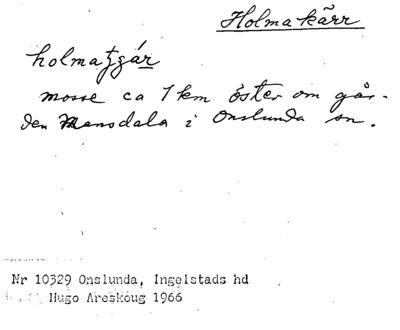 Holmakärr
holmatjgár
mosse ca 1 km öster om går-
den Mansdala i Onslunda sn.
Nr 10329 Onslunda, Ingelstads hd
Hugo Areskoug 1966